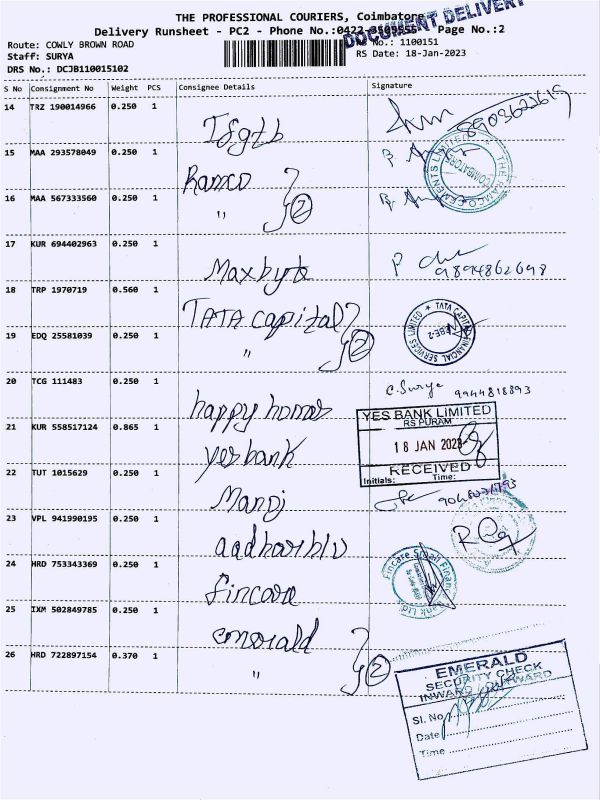 THE PROFESSIONAL COURIERS, Coimbatore
DOCUMENT DELIVERY
Delivery Runsheet - PC2 - Phone No.:0422 Page No.:2
Route: COWLY BROWN ROAD
RS No.: 1100151
Staff: SURYA
RS Date: 18-Jan-2023
DRS No.: DCJB110015102
S No Consignment No Weight PCS Consignee Details Signature
14 TRZ 190014966 0.250 1
8903622619
15 MAA 293578049 0.250 1 Ramco
THE RAMCO CEMENTS LIMITED
COIMBATORE
16 MAA 567333560 0.250 1 " 2
17 KUR 694402963 0.250 1 Maxbyte
9894862698
18 TRP 1970719 0.560 1 TATA capital
TATA CAPITAL FINANCIAL SERVICES LIMITED
19 EDQ 25581039 0.250 1 " 2
20 TCG 111483 0.250 1 happy homes
C. Surya 9944818893
21 KUR 558517124 0.865 1 yes bank
YES BANK LIMITED
RS PURAM
18 JAN 2023
RECEIVED
Initials: Time:
22 TUT 1015629 0.250 1 Manoj
23 VPL 941990195 0.250 1 aadhar blv
24 HRD 753343369 0.250 1 fincare
Fincare Small Finance Bank Ltd
25 IXM 502849785 0.250 1 emerald
26 HRD 722897154 0.370 1 " 2
EMERALD
SECURITY CHECK
INWARD OUTWARD
Sl. No
Date
Time